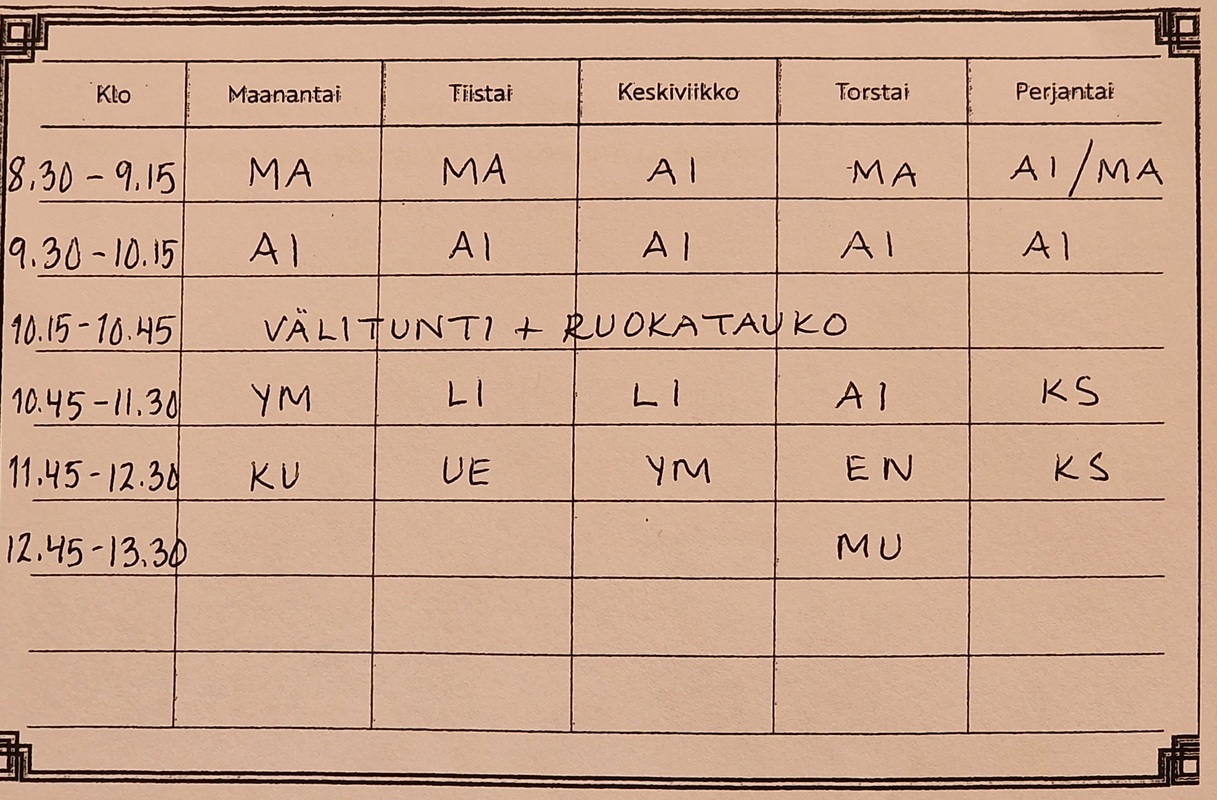 Klo Maanantai Tiistai Keskiviikko Torstai Perjantai
8.30 - 9.15 MA MA AI MA AI/MA
9.30 - 10.15 AI AI AI AI AI
10.15 - 10.45 VÄLITUNTI + RUOKATAUKO
10.45 - 11.30 YM LI LI AI KS
11.45 - 12.30 KU UE YM EN KS
12.45 - 13.30 MU